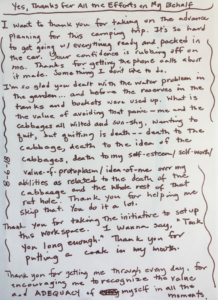 Yes, Thanks for All the Efforts on My Behalf
I want to thank you for taking on the advance
planning for this camping trip. It's so hard
to get going w/ everything ready and packed in
the car. Your confidence is rubbing off on
me. Thanks for getting the phone calls about
it made. Something I don't like to do.
I'm so glad you dealt with the water problem in
the garden and before the reserves in the
tanks and buckets were used up. What is
the value of avoiding that panic — me and the
cabbages all wilted and soar-sky, wanting to
quit, but quitting is death — death to the
cabbage, death to the idea of the
cabbages, death to my self-esteem/self-worth/
value-of-protoplasm/idea-of-me over my
abilities as related to the death of the
cabbage and the whole rest of that
rat hole. Thank you for helping me
skip that. You do it a lot.
Thank you for taking the initiative to set up
this work space. I wanna say, "Took
you long enough." Thank you for
putting a cork in my mouth.
Thank you for getting me through every day, for
encouraging me to recognize the value
and ADEQUACY of myself in all the
moments
8-6-18